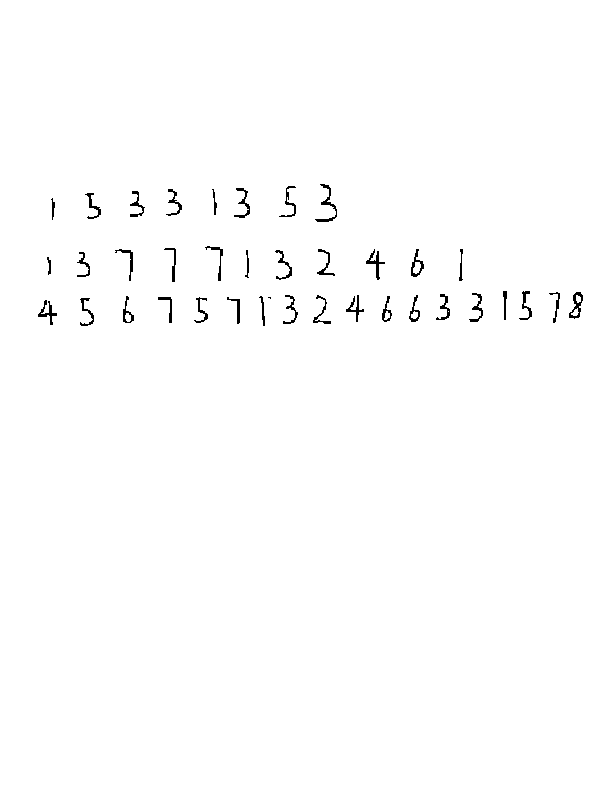 1 5 3 3 1 3 5 3
1 3 7 7 7 1 3 2 4 6 1
4 5 6 7 5 7 1 3 2 4 6 6 3 3 1 5 7 8